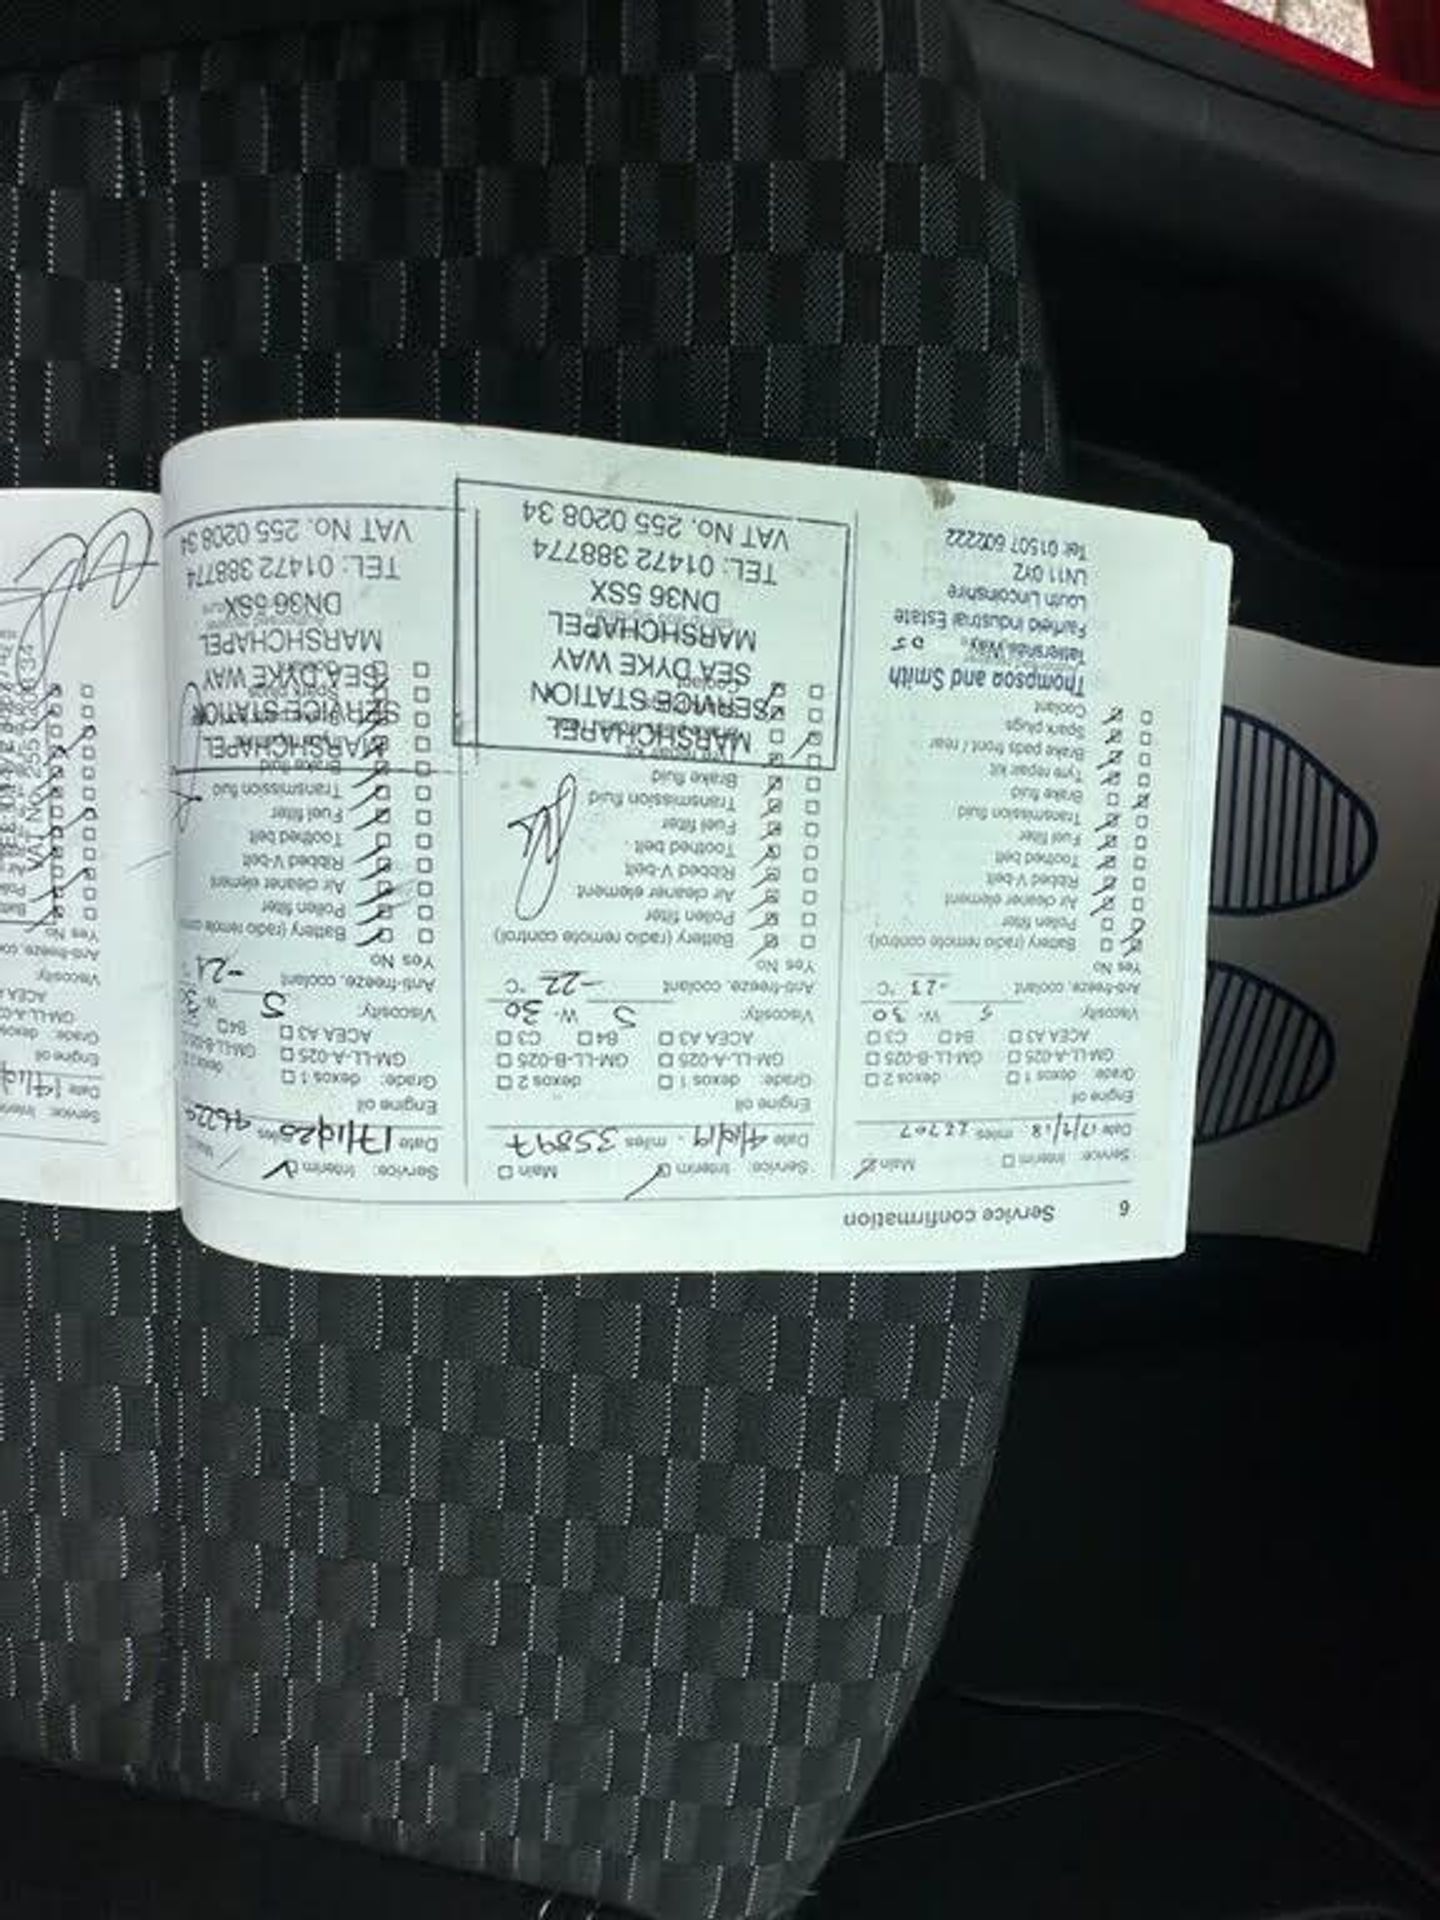 6 Service confirmation
Service: Interim Main
Date 17/9/18 miles
Engine oil
Grade: dexos 1 dexos 2
GM-LL-A-025 GM-LL-B-025
ACEA A3 B4 C3
Viscosity: 5 W- 30
Anti-freeze, coolant -23 °C
Yes No
Battery (radio remote control)
Pollen filter
Air cleaner element
Ribbed V-belt
Toothed belt
Fuel filter
Transmission fluid
Brake fluid
Tyre repair kit
Brake pads front / rear
Spark plugs
Coolant
Thompson and Smith
Tattershall Way,
Fairfield Industrial Estate
Louth Lincolnshire
LN11 0YZ
Tel: 01507 602222
Service: Interim Main
Date 4/10/19 miles 35897
Engine oil
Grade: dexos 1 dexos 2
GM-LL-A-025 GM-LL-B-025
ACEA A3 B4 C3
Viscosity: 5 W- 30
Anti-freeze, coolant -22 °C
Yes No
Battery (radio remote control)
Pollen filter
Air cleaner element
Ribbed V-belt
Toothed belt
Fuel filter
Transmission fluid
Brake fluid
MARSHCHAPEL
SERVICE STATION
SEA DYKE WAY
MARSHCHAPEL
DN36 5SX
TEL: 01472 388774
VAT No. 255 0208 34
Service: Interim
Date 17/10/20 miles
Engine oil
Grade: dexos 1
GM-LL-A-025
ACEA A3 B4
Viscosity: 5 W-
Anti-freeze, coolant -21
Yes No
Battery (radio remote
Pollen filter
Air cleaner element
Ribbed V-belt
Toothed belt
Fuel filter
Transmission fluid
Brake fluid
MARSHCHAPEL
SERVICE STATION
SEA DYKE WAY
MARSHCHAPEL
DN36 5SX
TEL: 01472 388774
VAT No. 255 0208 34
Service:
Date
Engine oil
Grade:
ACEA
Viscosity:
Anti-freeze,
Yes No